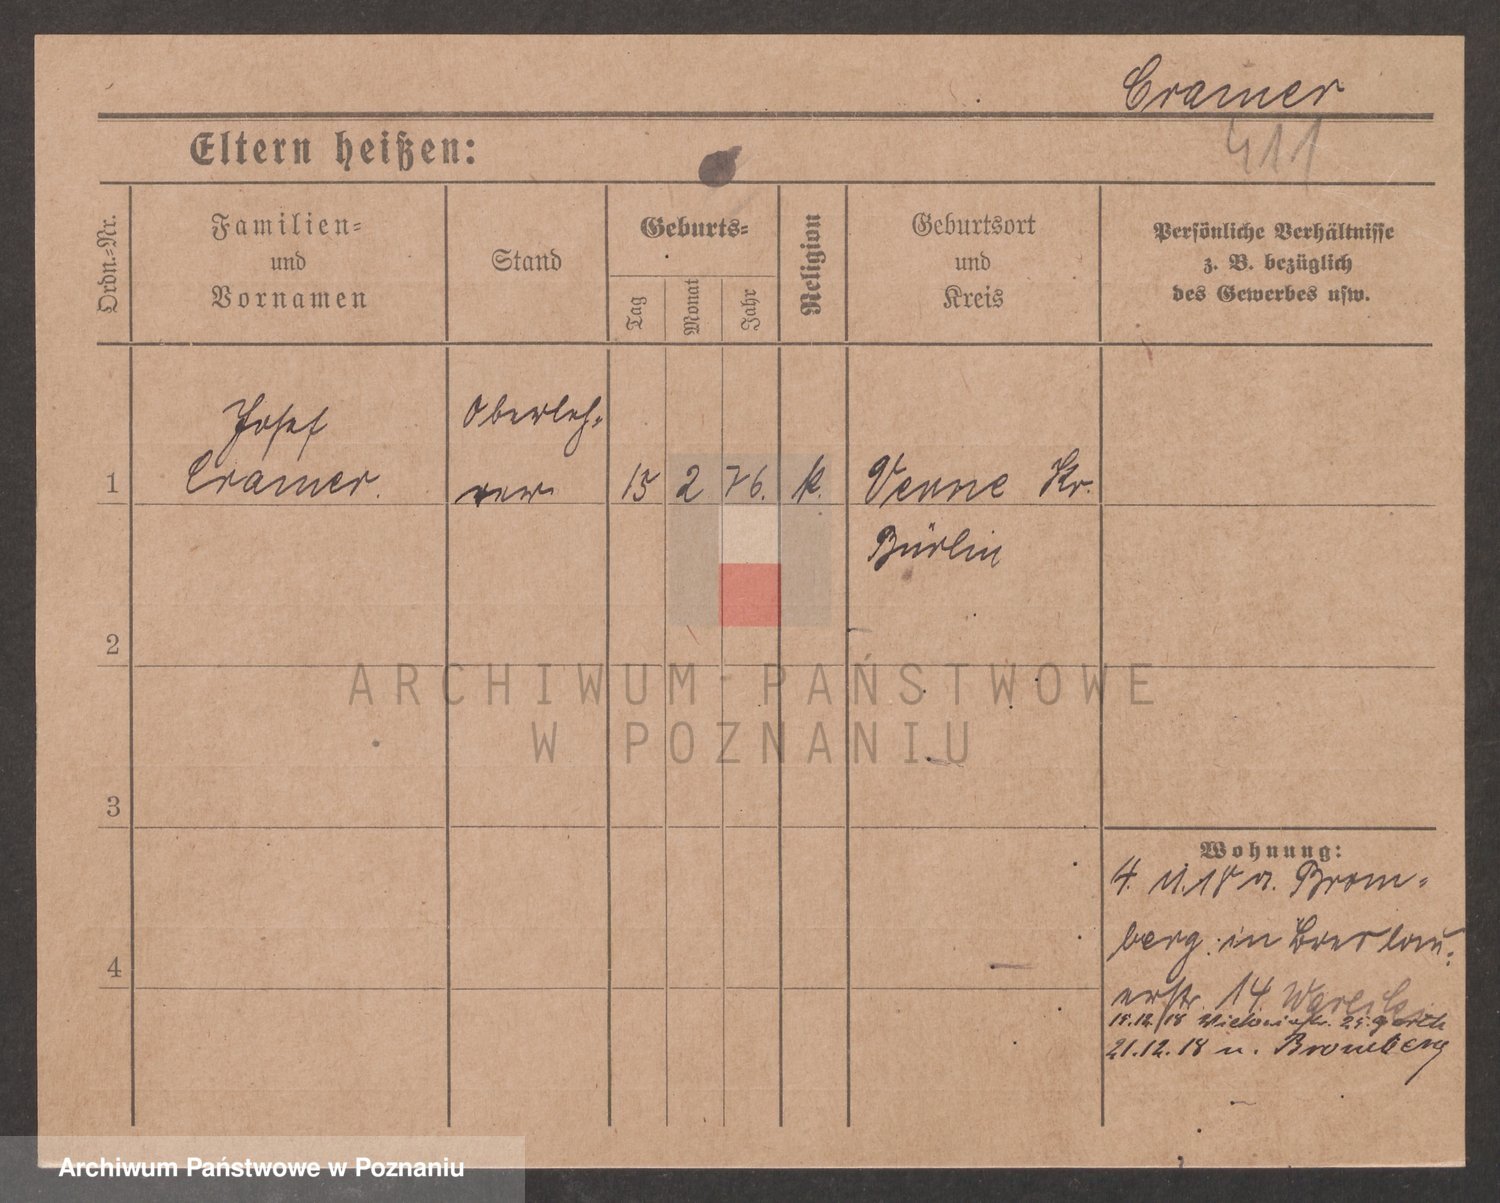 Cramer
411
Eltern heißen:
Ordn.-Nr.
Familien-
und
Vornamen
Stand
Geburts-
Tag
Monat
Jahr
Religion
Geburtsort
und
Kreis
Persönliche Verhältnisse
z. B. bezüglich
des Gewerbes usw.
1
Josef
Cramer.
Oberleh-
rer
15
2
76.
k.
Verne Kr.
Bürlin
2
3
4
Wohnung:
4. 11.18 a. Brom-
berg. in Breslau-
erstr. 14
18.12.18 Victoriastr. 25
21.12.18 n. Bromberg
ARCHIWUM PAŃSTWOWE
W POZNANIU
Archiwum Państwowe w Poznaniu